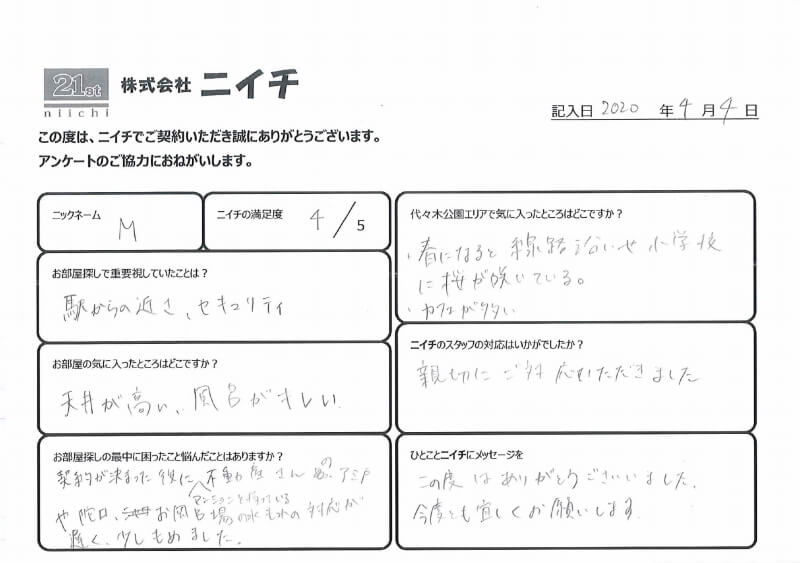 21st
niichi
株式会社 ニイチ
記入日 2020 年 4 月 4 日
この度は、ニイチでご契約いただき誠にありがとうございます。
アンケートのご協力におねがいします。
ニックネーム
M
ニイチの満足度
4/5
お部屋探しで重要視していたことは？
駅からの近さ、セキュリティ
お部屋の気に入ったところはどこですか？
天井が高い、風呂がキレい
お部屋探しの最中に困ったこと悩んだことはありますか？
契約が決まった後に、不動産さん の アミド
マンションを持っている
や蛇口、お風呂場の水もれの対応が
遅く、少しもめました。
代々木公園エリアで気に入ったところはどこですか？
・春になると線路沿いや小学校
に桜が咲いている。
・カフェが多い
ニイチのスタッフの対応はいかがでしたか？
親切にご対応いただきました
ひとことニイチにメッセージを
この度はありがとうございいました。
今後とも宜しくお願いします。